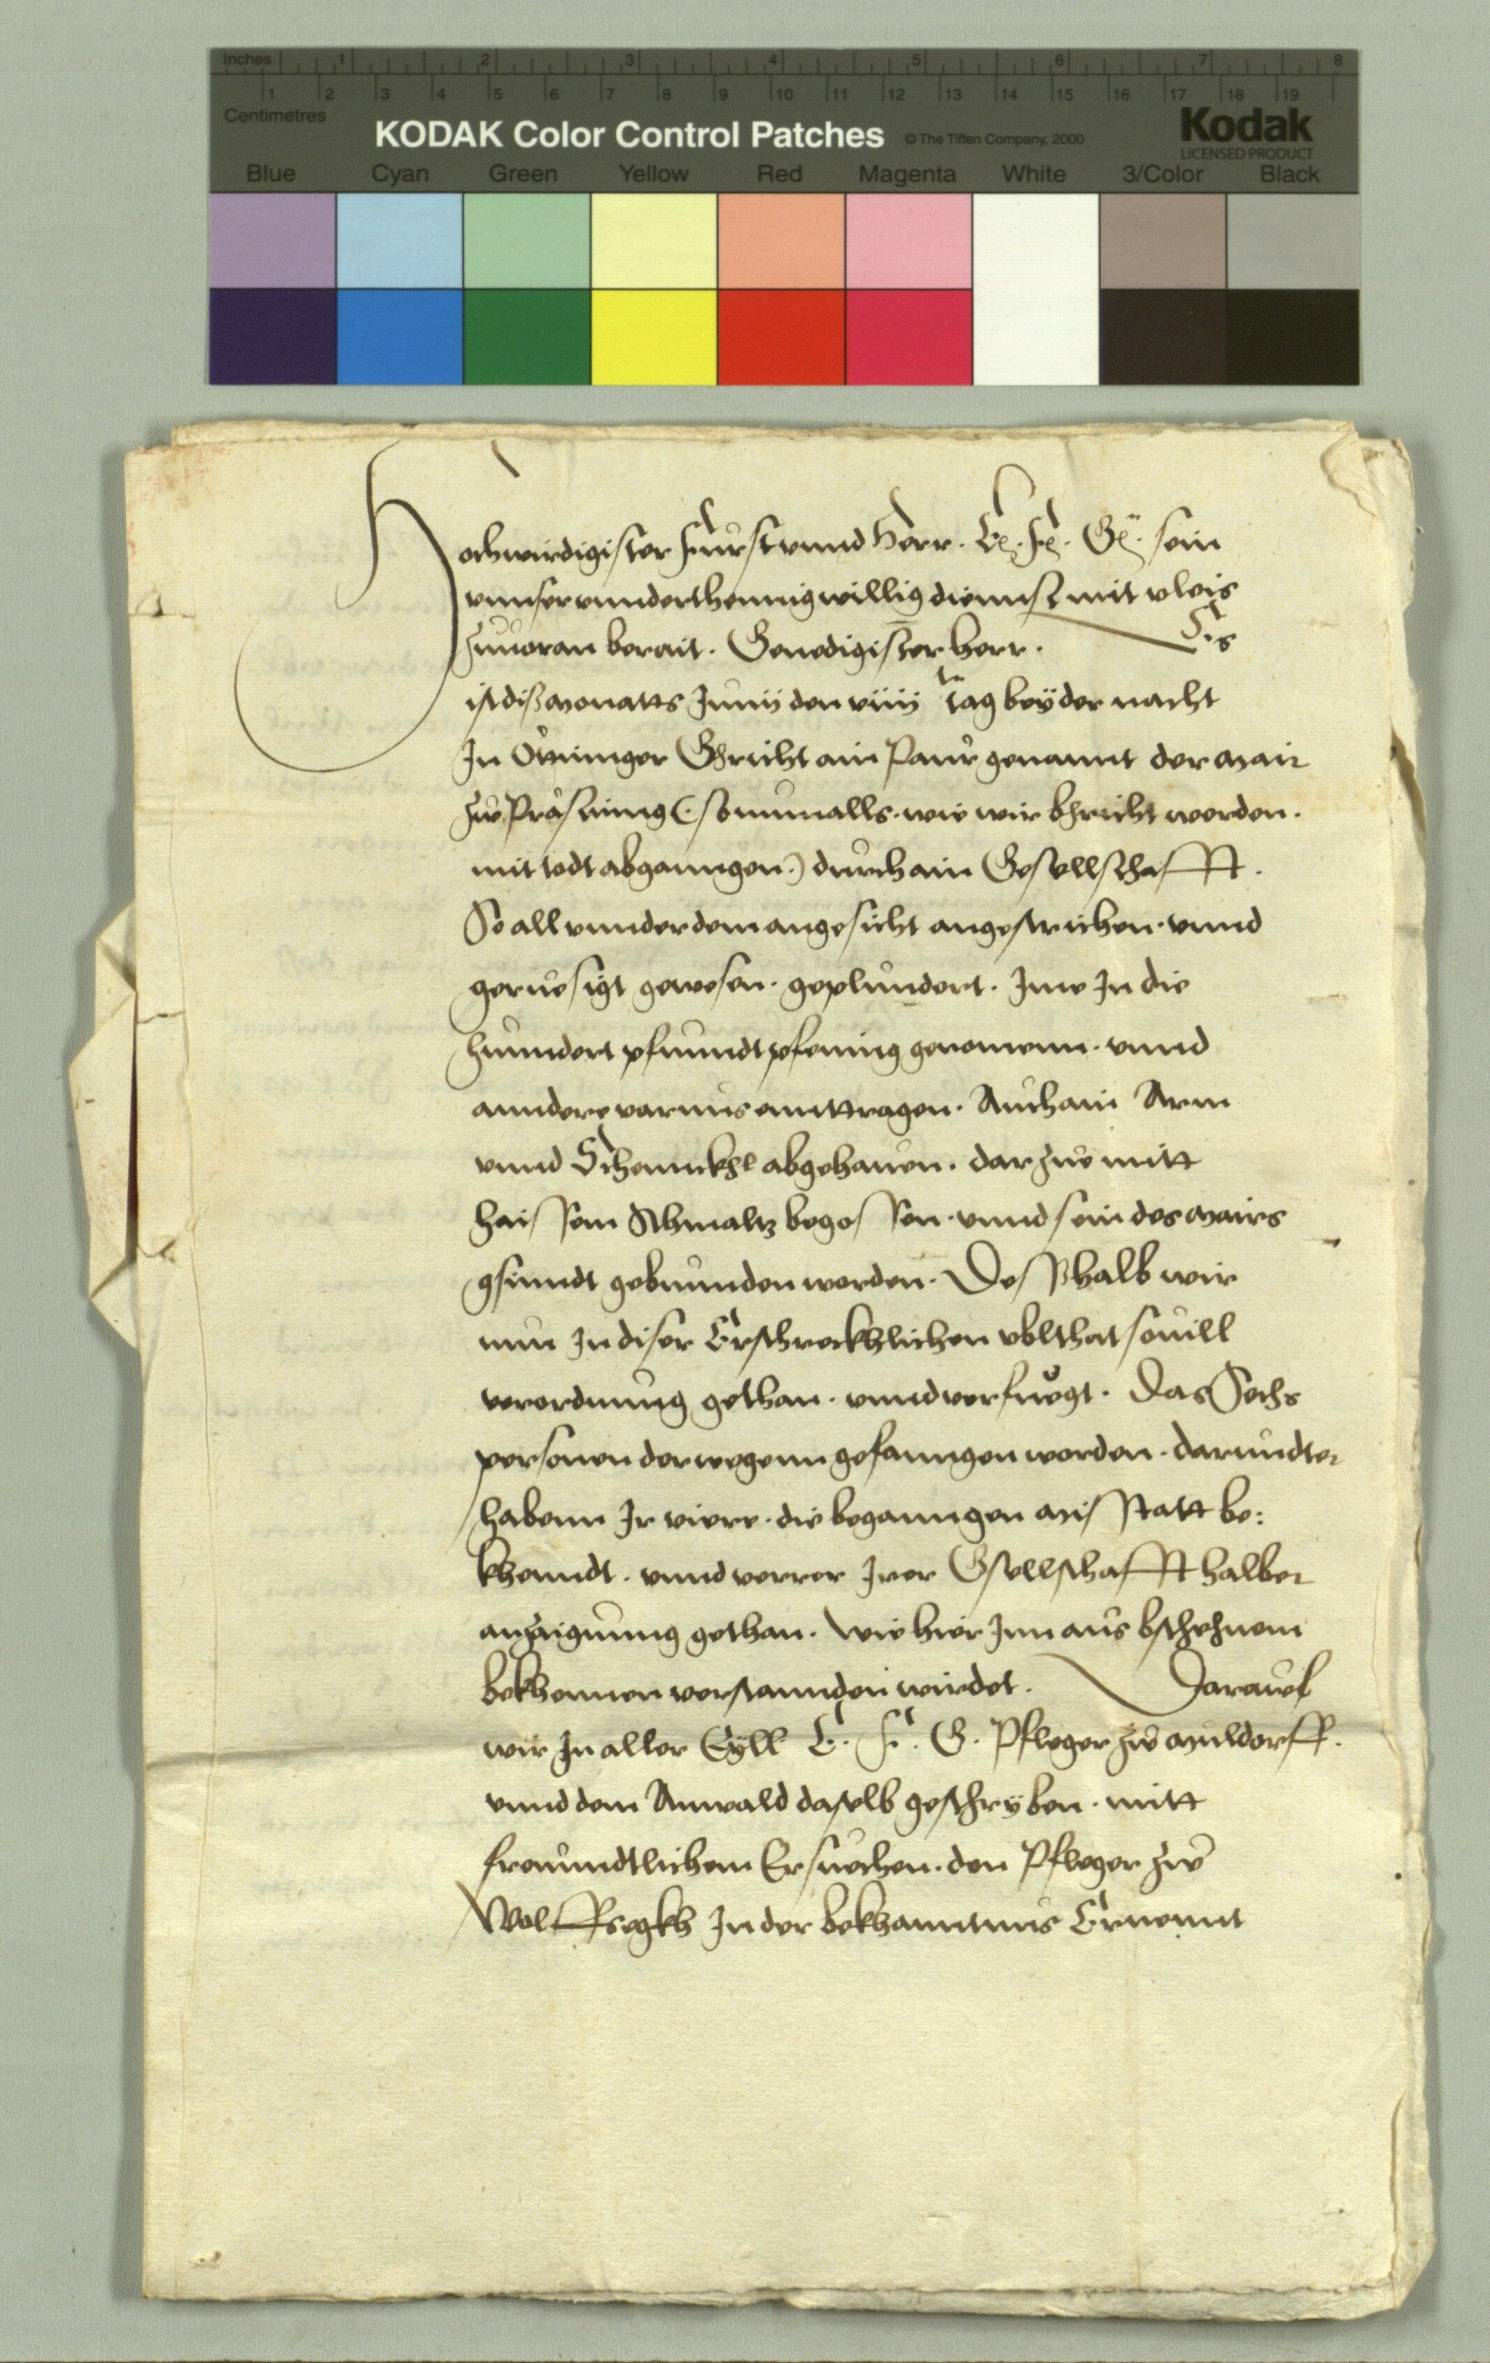 Inches 1 2 3 4 5 6 7 8
1 2 3 4 5 6 7 8 9 10 11 12 13 14 15 16 17 18 19
Centimetres
KODAK Color Control Patches © The Tiffen Company, 2000 Kodak
LICENSED PRODUCT
Blue Cyan Green Yellow Red Magenta White 3/Color Black
Hochwirdigister Fürst vnnd Herr. E. F. G. sein
vnnser vnnderthennig willig diennst mit vleis
zuuoran berait. Genedigister herr. Es
ist diß monatts Junij den viiij ten tag bey der nacht
In Ottinger Gericht ain Paur genannt der mair
zw Präsning (so nunmalls. wie wir bericht worden.
mit todt abganngen.) durch ain Gesellschafft.
So all vnnder dem angesicht angestrichen. vnnd
geruesigt gewesen. geplundert. Ime In die
hunndert pfunndt pfening genomenn. vnnd
anndere varnus enntragen. Auch ain Arm
vnnd Schennkhl abgehauen. darzue mitt
haissem Schmaltz begossen. vnnd sein des mairs
gsinndt gebunnden worden. Desshalb wir
nun In diser Erschrockhlichen vbltat souill
verordnung gethan. vnnd verfuegt. Das Sechs
personen derwegenn gefanngen worden. darundter
habenn Ir viere. die beganngen missstatt be:
khenndt. vnnd verrer Irer Gsellschafft halber
anzaignung gethan. Wie hier Inn aus bschehnem
bekhennen verstannden wirdet. Darauf
wir In aller Eyll E. F. G. Pfleger zw muldorff.
vnnd dem Anwald daselb geschryben. mitt
freundtlichem Ersuechen. den Pfleger zw
Wolffsegkh In der bekhanntnus Ernennt